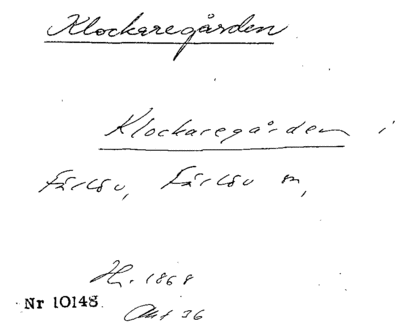 Klockaregården
Klockaregården i
Färlöv, Färlöv
H. 1868
Nr 10148
36